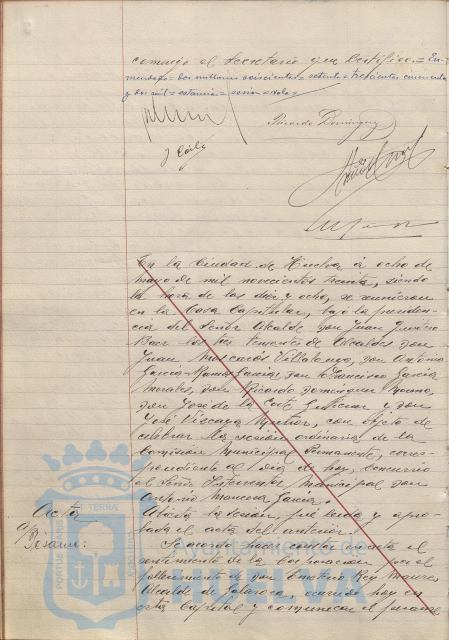 conmigo el Secretario que Certifico.= En-
mendado= dos millones seiscientos= setenta= trescientos cincuenta
y dos mil= estancia= sesion= Vale=
Ricardo Dominguez
En la Ciudad de Huelva á ocho de
mayo de mil novecientos treinta, siendo
la hora de las diez y ocho, se reunieron
en la Casa Capitular, bajo la presiden-
cia del Señor Alcalde don Juan
los Sres Tenientes de Alcaldes don
Juan Muscarós Villalonga, don Antonio
Garcia Ramos, don Francisco Garcia
Morales, don Ricardo Dominguez Moreno,
don José de la Corte Gutierrez y don
José Vizcaya, con objeto de
celebrar la sesion ordinaria de la
Comisión Municipal Permanente, corres-
pondiente al dia de hoy, concurrió
el Señor Interventor Municipal don
Antonio Garcia.
Acta
Abierta la sesion, fué leida y apro-
bada el acta del anterior.
Pésame:
Se acordó hacer constar en acta el
sentimiento de la Corporacion por el
fallecimiento de don Emeterio Rey
Alcalde de Galaroza, ocurrido hoy en
esta Capital y comunicar el pésame
PORTUS MARIS ET TERRÆ CUSTODIA
Ayuntamiento de
HUELVA